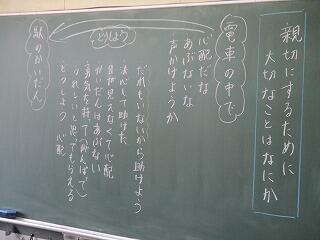 親切にするために
大切なことはなにか
電車の中で
心配だな
あぶないな
声かけようか
どうしよう
だれもいないから助けよう
決心して助けた
目が見えなくて心配
かいだんはあぶない
勇気を持って
うれしいと思ってもらえる
どうしよう 心配
駅のかいだん